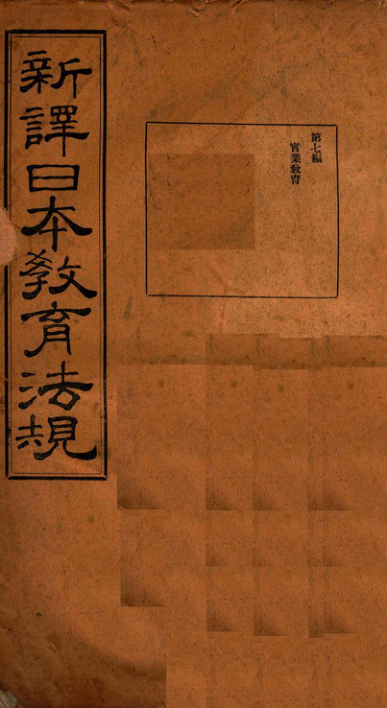 新譯日本教育法規
第七編
實業教育